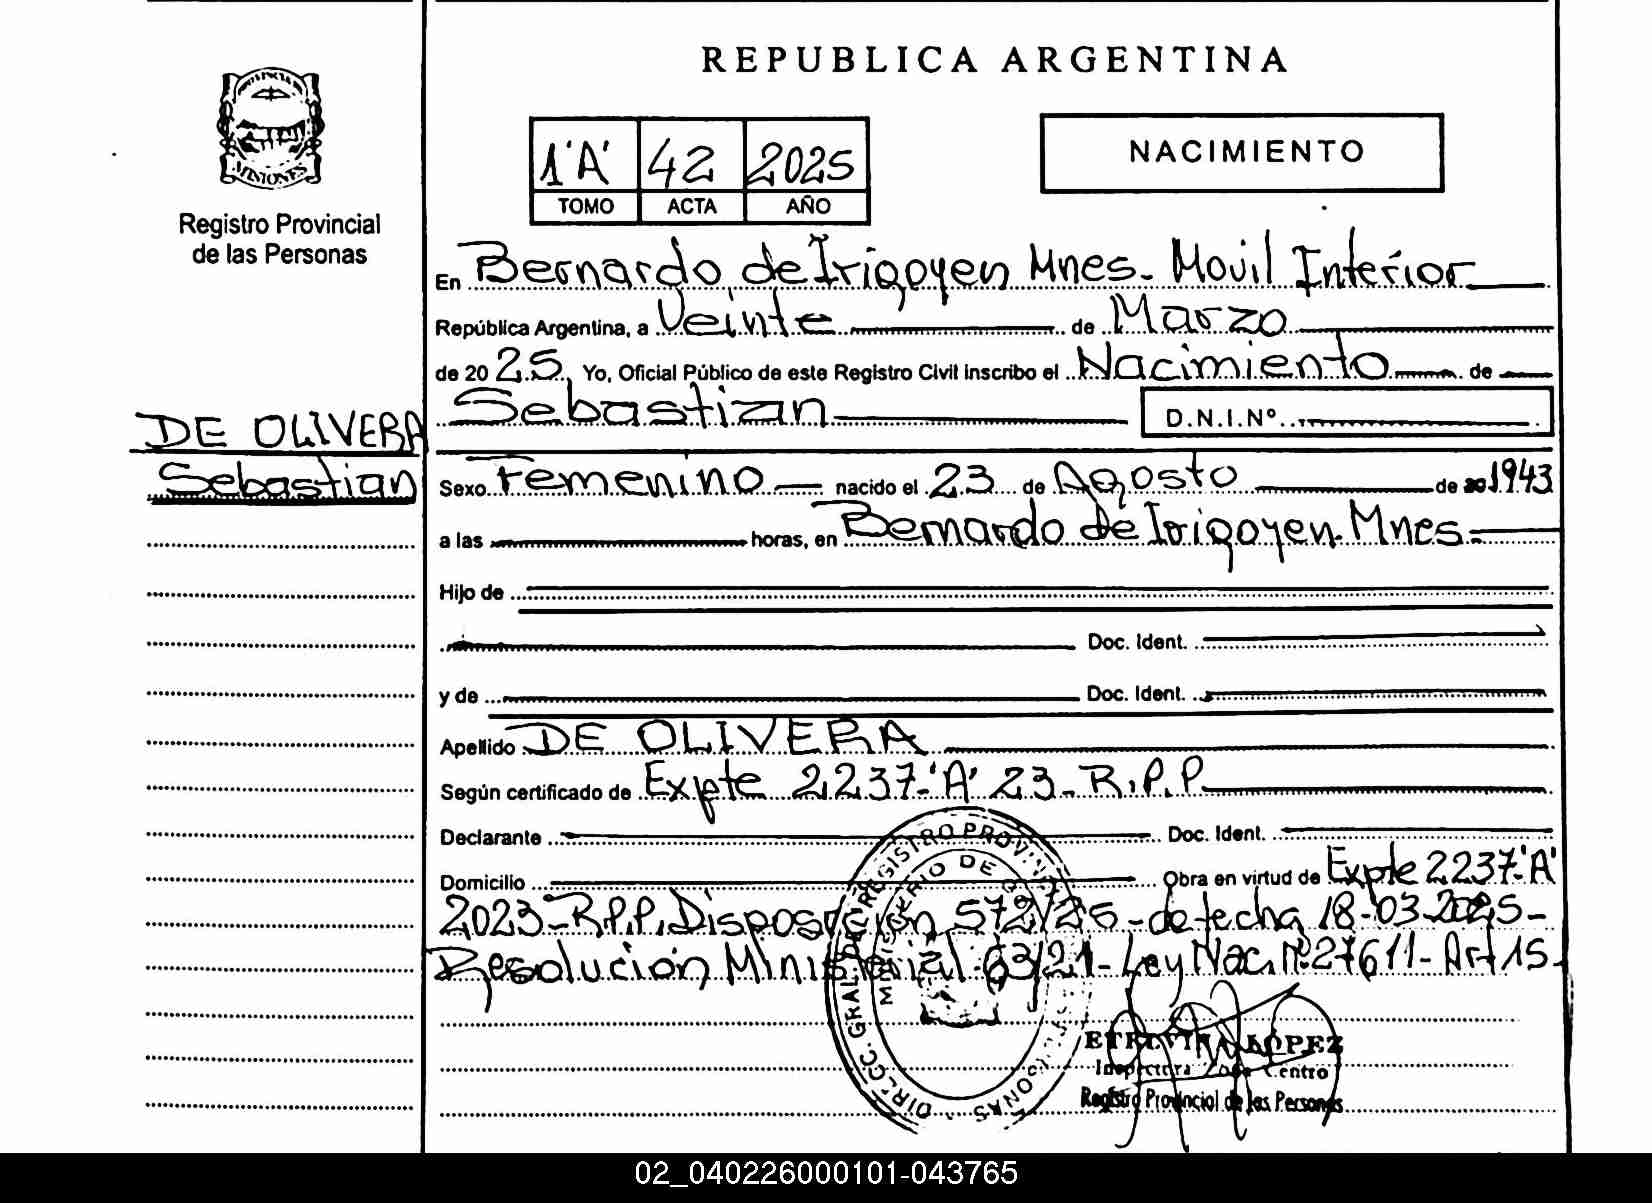 REPUBLICA ARGENTINA
MISIONES
Registro Provincial
de las Personas
1'A' 42 2025
TOMO ACTA AÑO
NACIMIENTO
En Bernardo de Irigoyen Mnes. Movil Interior
República Argentina, a Veinte de Marzo
de 2025, Yo, Oficial Público de este Registro Civil inscribo el Nacimiento de
Sebastian D.N.I.Nº
DE OLIVERA
Sebastian
Sexo Femenino nacido el 23 de Agosto de 1943
a las horas, en Bernardo de Irigoyen. Mnes.
Hijo de
Doc. Ident.
y de Doc. Ident.
Apellido DE OLIVERA
Según certificado de Expte 2237-'A' 23-R.P.P.
Declarante Doc. Ident.
Domicilio Obra en virtud de Expte 2237-'A'
2023-R.P.P. Disposición 572/25-de fecha 18-03-2025-
Resolución Ministerial 63/21-Ley Nac. Nº27611-Art 15.
DIRECC. GRAL. DEL REGISTRO PROVINCIAL DE LAS PERSONAS
MINISTERIO DE
ETELVINA LÓPEZ
Inspectora Zona Centro
Registro Provincial de las Personas
02_040226000101-043765